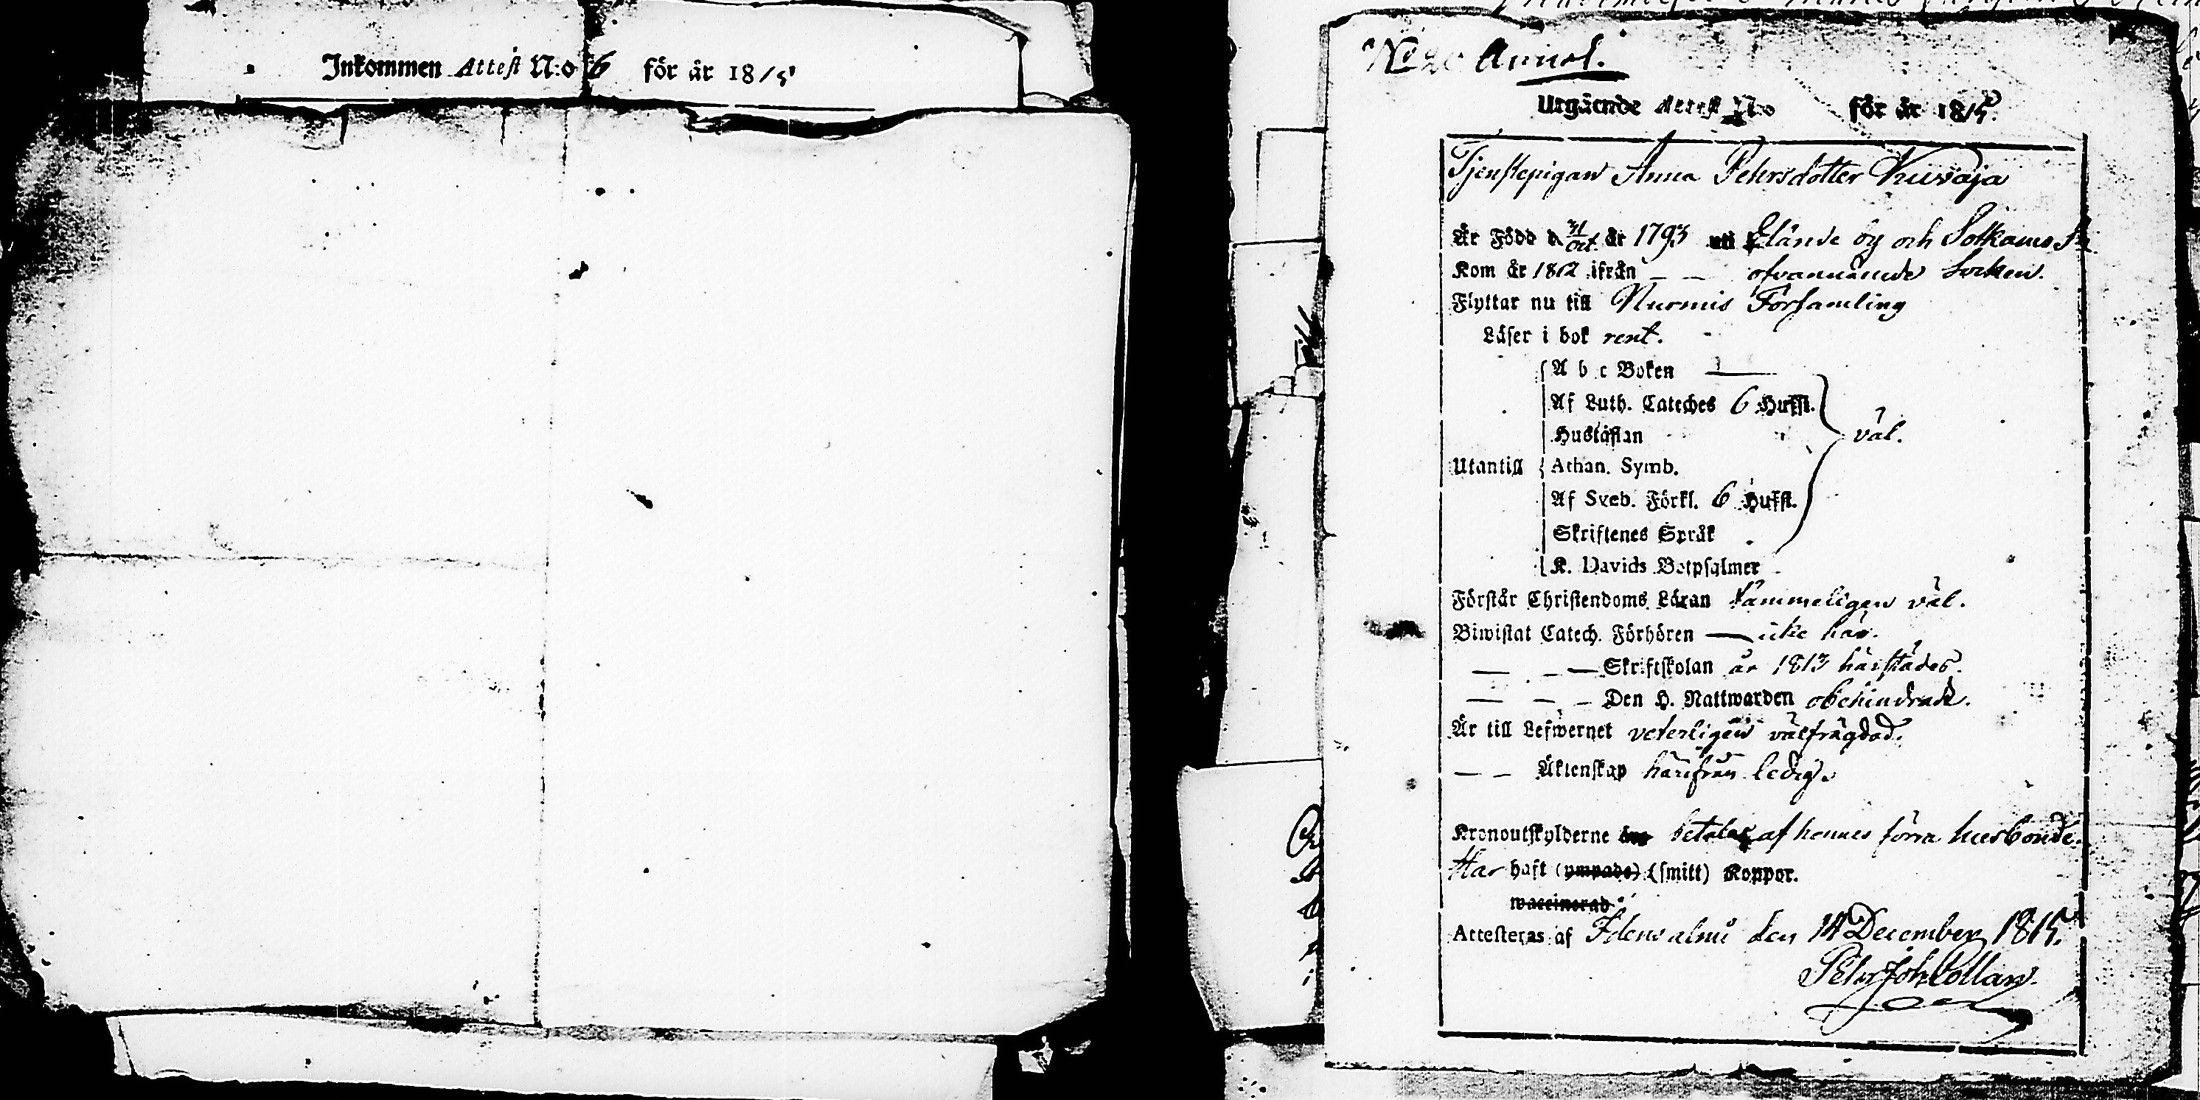 Inkommen Attest N:o 6 för år 1815
No 20 Annot.
Utgående Attest N:o för år 1815.
Tjenstepigan Anna Pehrsdotter
Är Född d 31/Oct. år 1793 uti by och Sotkamo
Kom år 1812 ifrån — — ofvannämde Socken.
Flyttar nu till Nurmis Församling
Läser i bok rent.
A b c Boken —
Af Luth. Cateches 6 Hufst.
Hustaflan
väl.
Utantill Athan. Symb.
Af Sveb. Förkl. 6 Hufst.
Skriftenes Språk
K. Davids Botpsalmer
Förstår Christendoms Läran tämmeligen väl.
Biwistat Catech. Förhören — icke här.
— — — Skriftskolan år 1813 härstädes.
— — — Den H. Nattwarden obehindrad.
Är till Lefwernet veterligen välfrägdad.
— — Äktenskap härifrån ledig.
Kronoutskylderne betalas af hennes förra husbonde.
Har haft (ympade) (smitt) Koppor.
waccinerad
Attesteras af Idensalmi den 14 December 1815.
Pehr Joh Collan.